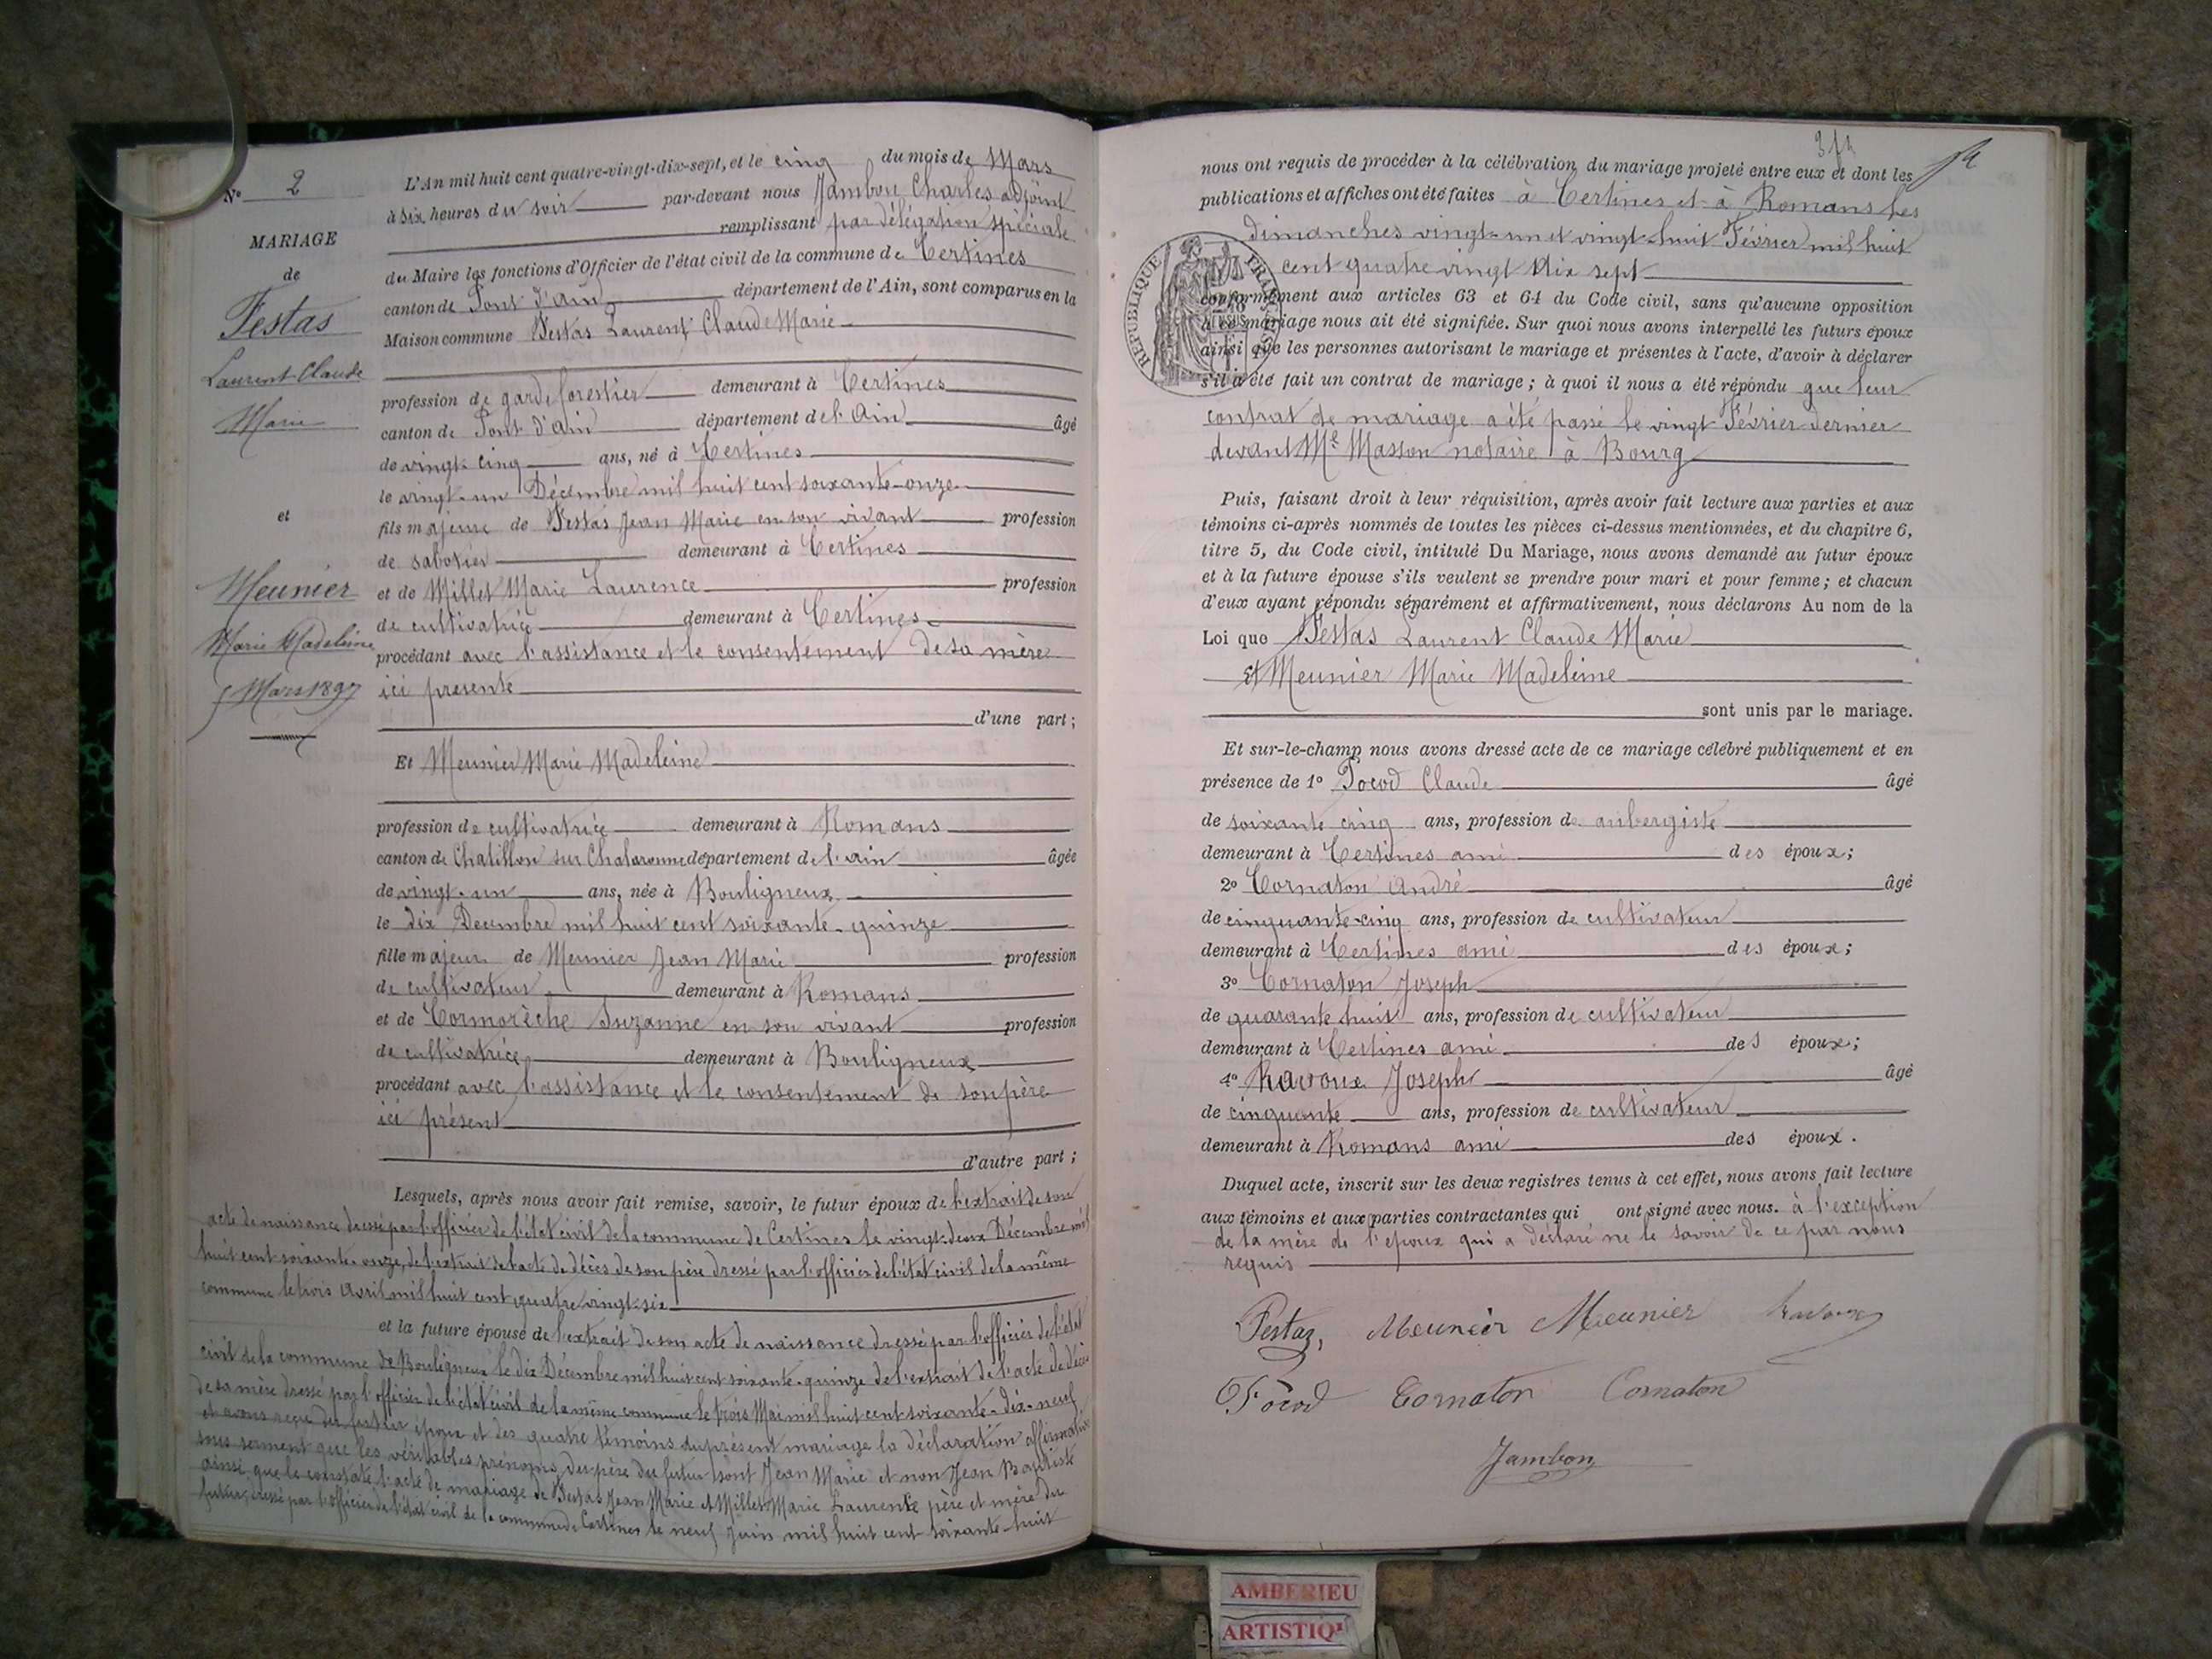 N° 2
MARIAGE
de
Festas
Laurent Claude
Marie
et
Meunier
Marie Madeleine
5 Mars 1897
L'An mil huit cent quatre-vingt-dix-sept, et le cinq du mois de Mars
à six heures du soir par-devant nous Jambon Charles adjoint
remplissant par délégation spéciale
du Maire les fonctions d'Officier de l'état civil de la commune de Certines
canton de Pont d'Ain département de l'Ain, sont comparus en la
Maison commune Festas Laurent Claude Marie
profession de garde forestier demeurant à Certines
canton de Pont d'Ain département de l'Ain âgé
de vingt-cinq ans, né à Certines
le vingt-un Décembre mil huit cent soixante-onze
fils majeur de Festas Jean Marie en son vivant profession
de sabotier demeurant à Certines
et de Millet Marie Laurence profession
de cultivatrice demeurant à Certines
procédant avec l'assistance et le consentement de sa mère
ici présente
d'une part;
Et Meunier Marie Madeleine
profession de cultivatrice demeurant à Romans
canton de Chatillon sur Chalaronne département de l'ain âgée
de vingt-un ans, née à Bouligneux
le dix Decembre mil huit cent soixante-quinze
fille majeure de Meunier Jean Marie profession
de cultivateur demeurant à Romans
et de Cormorèche Suzanne en son vivant profession
de cultivatrice demeurant à Bouligneux
procédant avec l'assistance et le consentement de son père
ici présent
d'autre part;
Lesquels, après nous avoir fait remise, savoir, le futur époux de l'extrait de son
acte de naissance dressé par l'officier de l'état civil de la commune de Certines le vingt-deux Décembre mil
huit cent soixante-onze, de l'extrait de l'acte de décès de son père dressé par l'officier de l'état civil de la même
commune le trois avril mil huit cent quatre vingt-six
et la future épouse de l'extrait de son acte de naissance dressé par l'officier de l'état
civil de la commune de Bouligneux le dix Décembre mil huit cent soixante-quinze de l'extrait de l'acte de décès
de sa mère dressé par l'officier de l'état civil de la même commune le trois Mai mil huit cent soixante-dix-neuf
et avons reçu du futur époux et des quatre témoins du présent mariage la déclaration affirmative
sous serment que les véritables prénoms du père du futur sont Jean Marie et non Jean Baptiste
ainsi que le constate l'acte de mariage de Festas Jean Marie et Millet Marie Laurence père et mère du
futur, dressé par l'officier de l'état civil de la commune de Certines le neuf Juin mil huit cent soixante-huit
nous ont requis de procéder à la célébration du mariage projeté entre eux et dont les
publications et affiches ont été faites à Certines et à Romans les
dimanches vingt-un et vingt-huit Février mil huit
cent quatre vingt dix sept
RÉPUBLIQUE FRANÇAISE
conformément aux articles 63 et 64 du Code civil, sans qu'aucune opposition
à ce mariage nous ait été signifiée. Sur quoi nous avons interpellé les futurs époux
ainsi que les personnes autorisant le mariage et présentes à l'acte, d'avoir à déclarer
s'il a été fait un contrat de mariage; à quoi il nous a été répondu que leur
contrat de mariage a été passé le vingt Février dernier
devant Me Masson notaire à Bourg
Puis, faisant droit à leur réquisition, après avoir fait lecture aux parties et aux
témoins ci-après nommés de toutes les pièces ci-dessus mentionnées, et du chapitre 6,
titre 5, du Code civil, intitulé Du Mariage, nous avons demandé au futur époux
et à la future épouse s'ils veulent se prendre pour mari et pour femme; et chacun
d'eux ayant répondu séparément et affirmativement, nous déclarons Au nom de la
Loi que Festas Laurent Claude Marie
Et Meunier Marie Madeleine
sont unis par le mariage.
Et sur-le-champ nous avons dressé acte de ce mariage célébré publiquement et en
présence de 1° Pocod Claude âgé
de soixante cinq ans, profession de aubergiste
demeurant à Certines ami des époux;
2° Cornaton André âgé
de cinquante-cinq ans, profession de cultivateur
demeurant à Certines ami des époux;
3° Cornaton Joseph
de quarante huit ans, profession de cultivateur
demeurant à Certines ami des époux;
4° Ravoux Joseph âgé
de cinquante ans, profession de cultivateur
demeurant à Romans ami des époux.
Duquel acte, inscrit sur les deux registres tenus à cet effet, nous avons fait lecture
aux témoins et aux parties contractantes qui ont signé avec nous. à l'exception
de la mère de l'époux qui a déclaré ne le savoir de ce par nous
requis
Festas, Meunier Meunier Ravoux
Pocod Cornaton Cornaton
Jambon
AMBERIEU
ARTISTIQ